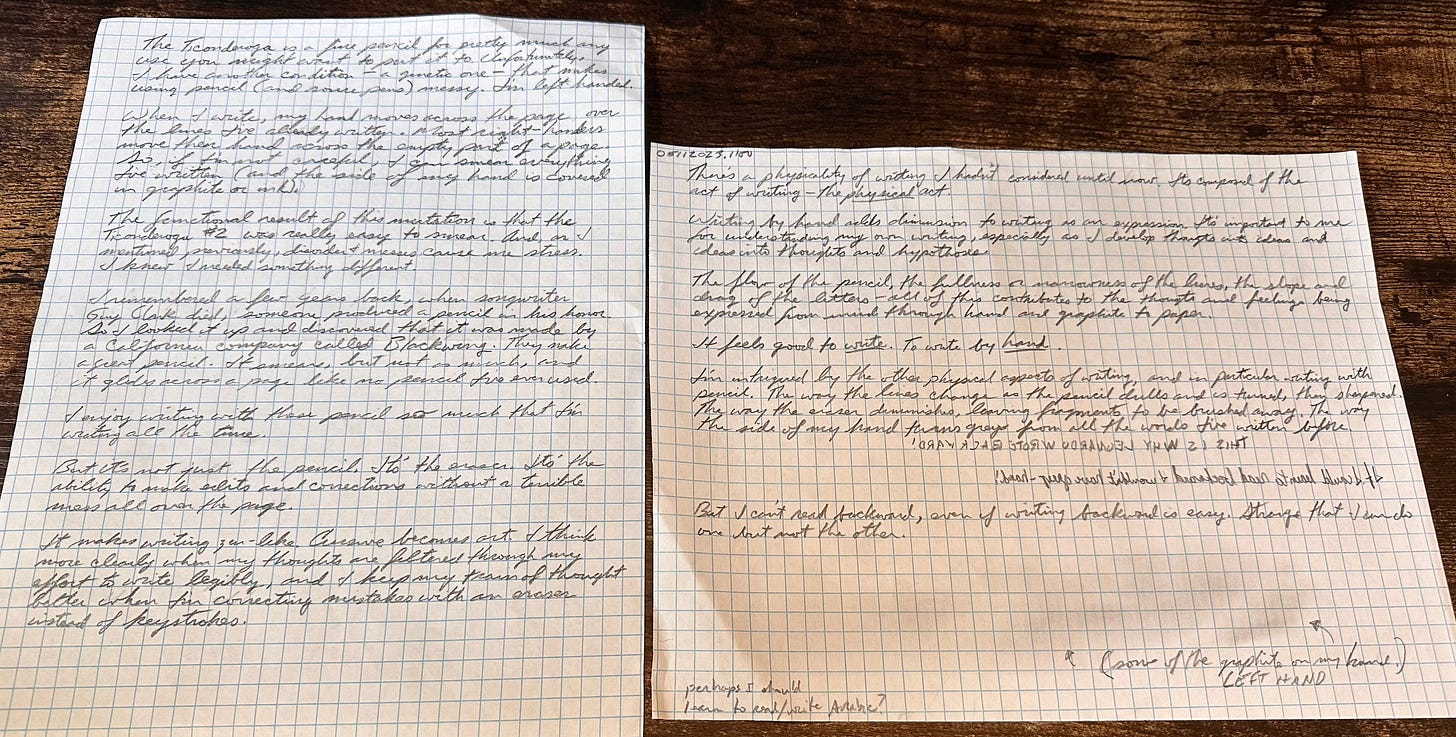 The Ticonderoga is a fine pencil for pretty much any
use you might want to put it to. Unfortunately,
I have another condition - a genetic one - that makes
using pencil (and some pens) messy. I'm left handed.
When I write, my hand moves across the page over
the lines I've already written. Most right-handers
move their hand across the empty part of a page.
So, if I'm not careful, I can smear everything
I've written (and the side of my hand is covered
in graphite or ink).
The functional result of this mutation is that the
Ticonderoga #2 was really easy to smear. And, as I
mentioned previously, disorder & messes cause me stress.
I knew I needed something different.
I remembered a few years back, when songwriter
Guy Clark died, someone produced a pencil in his honor.
So I looked it up and discovered that it was made by
a California company called Blackwing. They make
a great pencil. It smears, but not as much, and
it glides across a page like no pencil I've ever used.
I enjoy writing with these pencil so much that I'm
writing all the time.
But it's not just the pencil. It's the eraser. It's the
ability to make edits and corrections without a terrible
mess all over the page.
It makes writing zen-like. Cursive becomes art. I think
more clearly when my thoughts are filtered through my
effort to write legibly, and I keep my train of thought
better when I'm correcting mistakes with an eraser
instead of keystrokes.
There's a physicality of writing I hadn't considered until now. Its composed of the
act of writing - the physical act
Writing by hand adds dimension to writing as an expression. It's important to me
for understanding my own writing, especially as I develop thoughts into ideas and
ideas into thoughts and hypotheses.
The flow of the pencil, the fullness or narrowness of the lines, the slope and
drag of the letters - all of this contributes to the thoughts and feelings being
expressed from mind through hand and graphite to paper.
It feels good to write. To write by hand.
I'm intrigued by the other physical aspects of writing, and in particular writing with
pencil. The way the lines change as the pencil dulls and is turned, then sharpened.
The way the eraser diminishes, leaving fragments to be brushed away. The way
the side of my hand turns grey from all the words I've written before.
THIS IS WHY LEONARDO WROTE BACKWARD!
If I could learn to read backward I wouldn't have grey-hand!
But I can't read backward, even if writing backward is easy. Strange that I can do
one but not the other.
(some of the graphite on my hand.)
LEFT HAND
perhaps I should
learn to read/write Arabic?